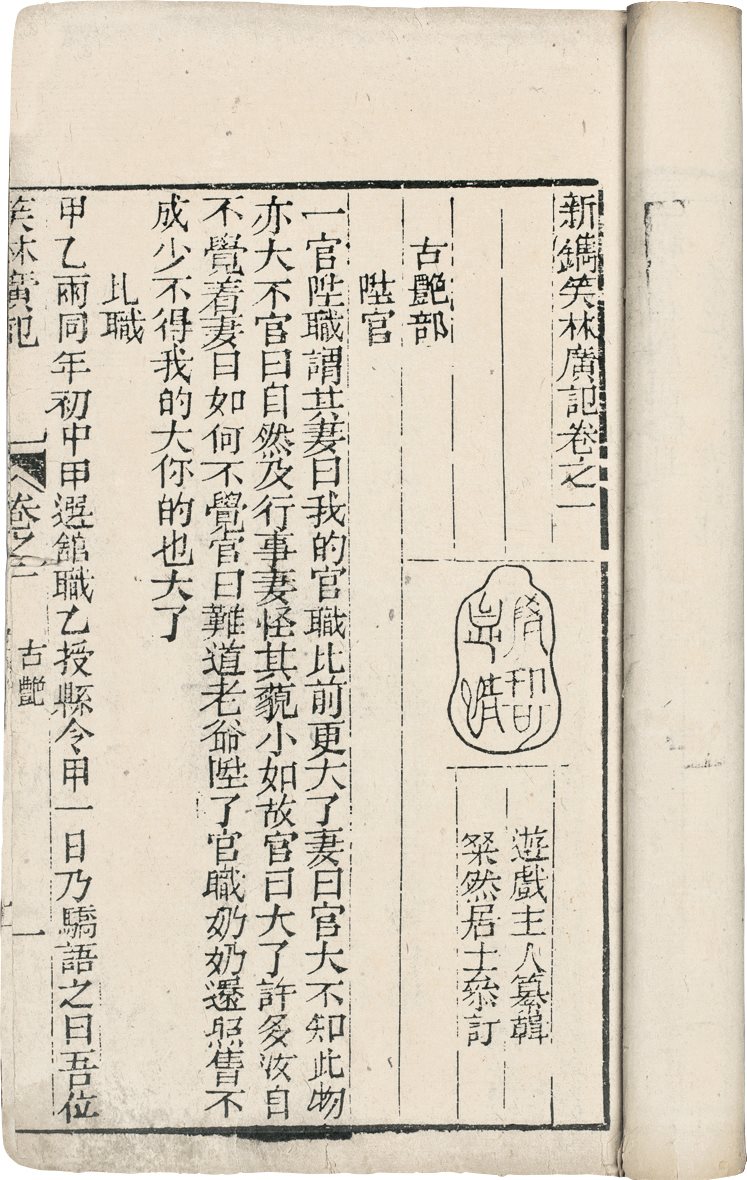 新鐫笑林廣記卷之一
遊戲主人纂輯
粲然居士叅訂
古艷部
陞官
一官陞職謂其妻曰我的官職比前更大了妻曰官大不知此物
亦大不官曰自然及行事妻怪其藐小如故官曰大了許多汝自
不覺着妻曰如何不覺官曰難道老爺陞了官職奶奶還照舊不
成少不得我的大你的也大了
比職
甲乙兩同年初中甲選館職乙授縣令甲一日乃驕語之曰吾位
笑林廣記 卷之一 古艷 一